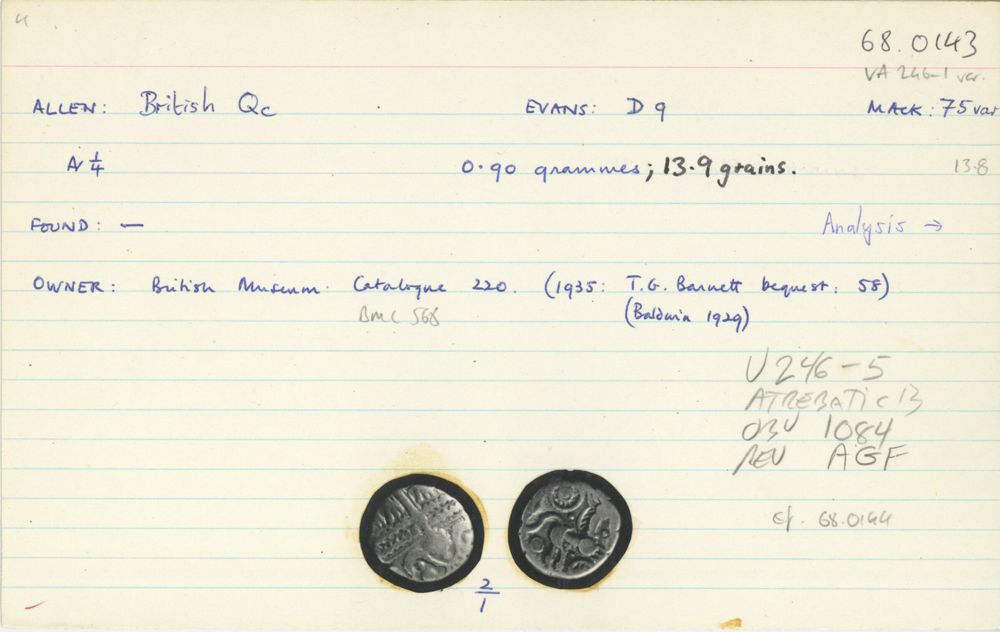 68.0143
VA 246-1 var.
ALLEN: British Qc EVANS: D 9 MACK: 75 var
AV 1/4 0.90 grammes; 13.9 grains. 13.8
FOUND: — Analysis →
OWNER: British Museum. Catalogue 220. (1935: T.G. Barnett bequest: 58)
BMC 568 (Baldwin 1929)
V 246-5
ATREBATIC B
OBV 1084
REV AGF
cf. 68.0144
2/1